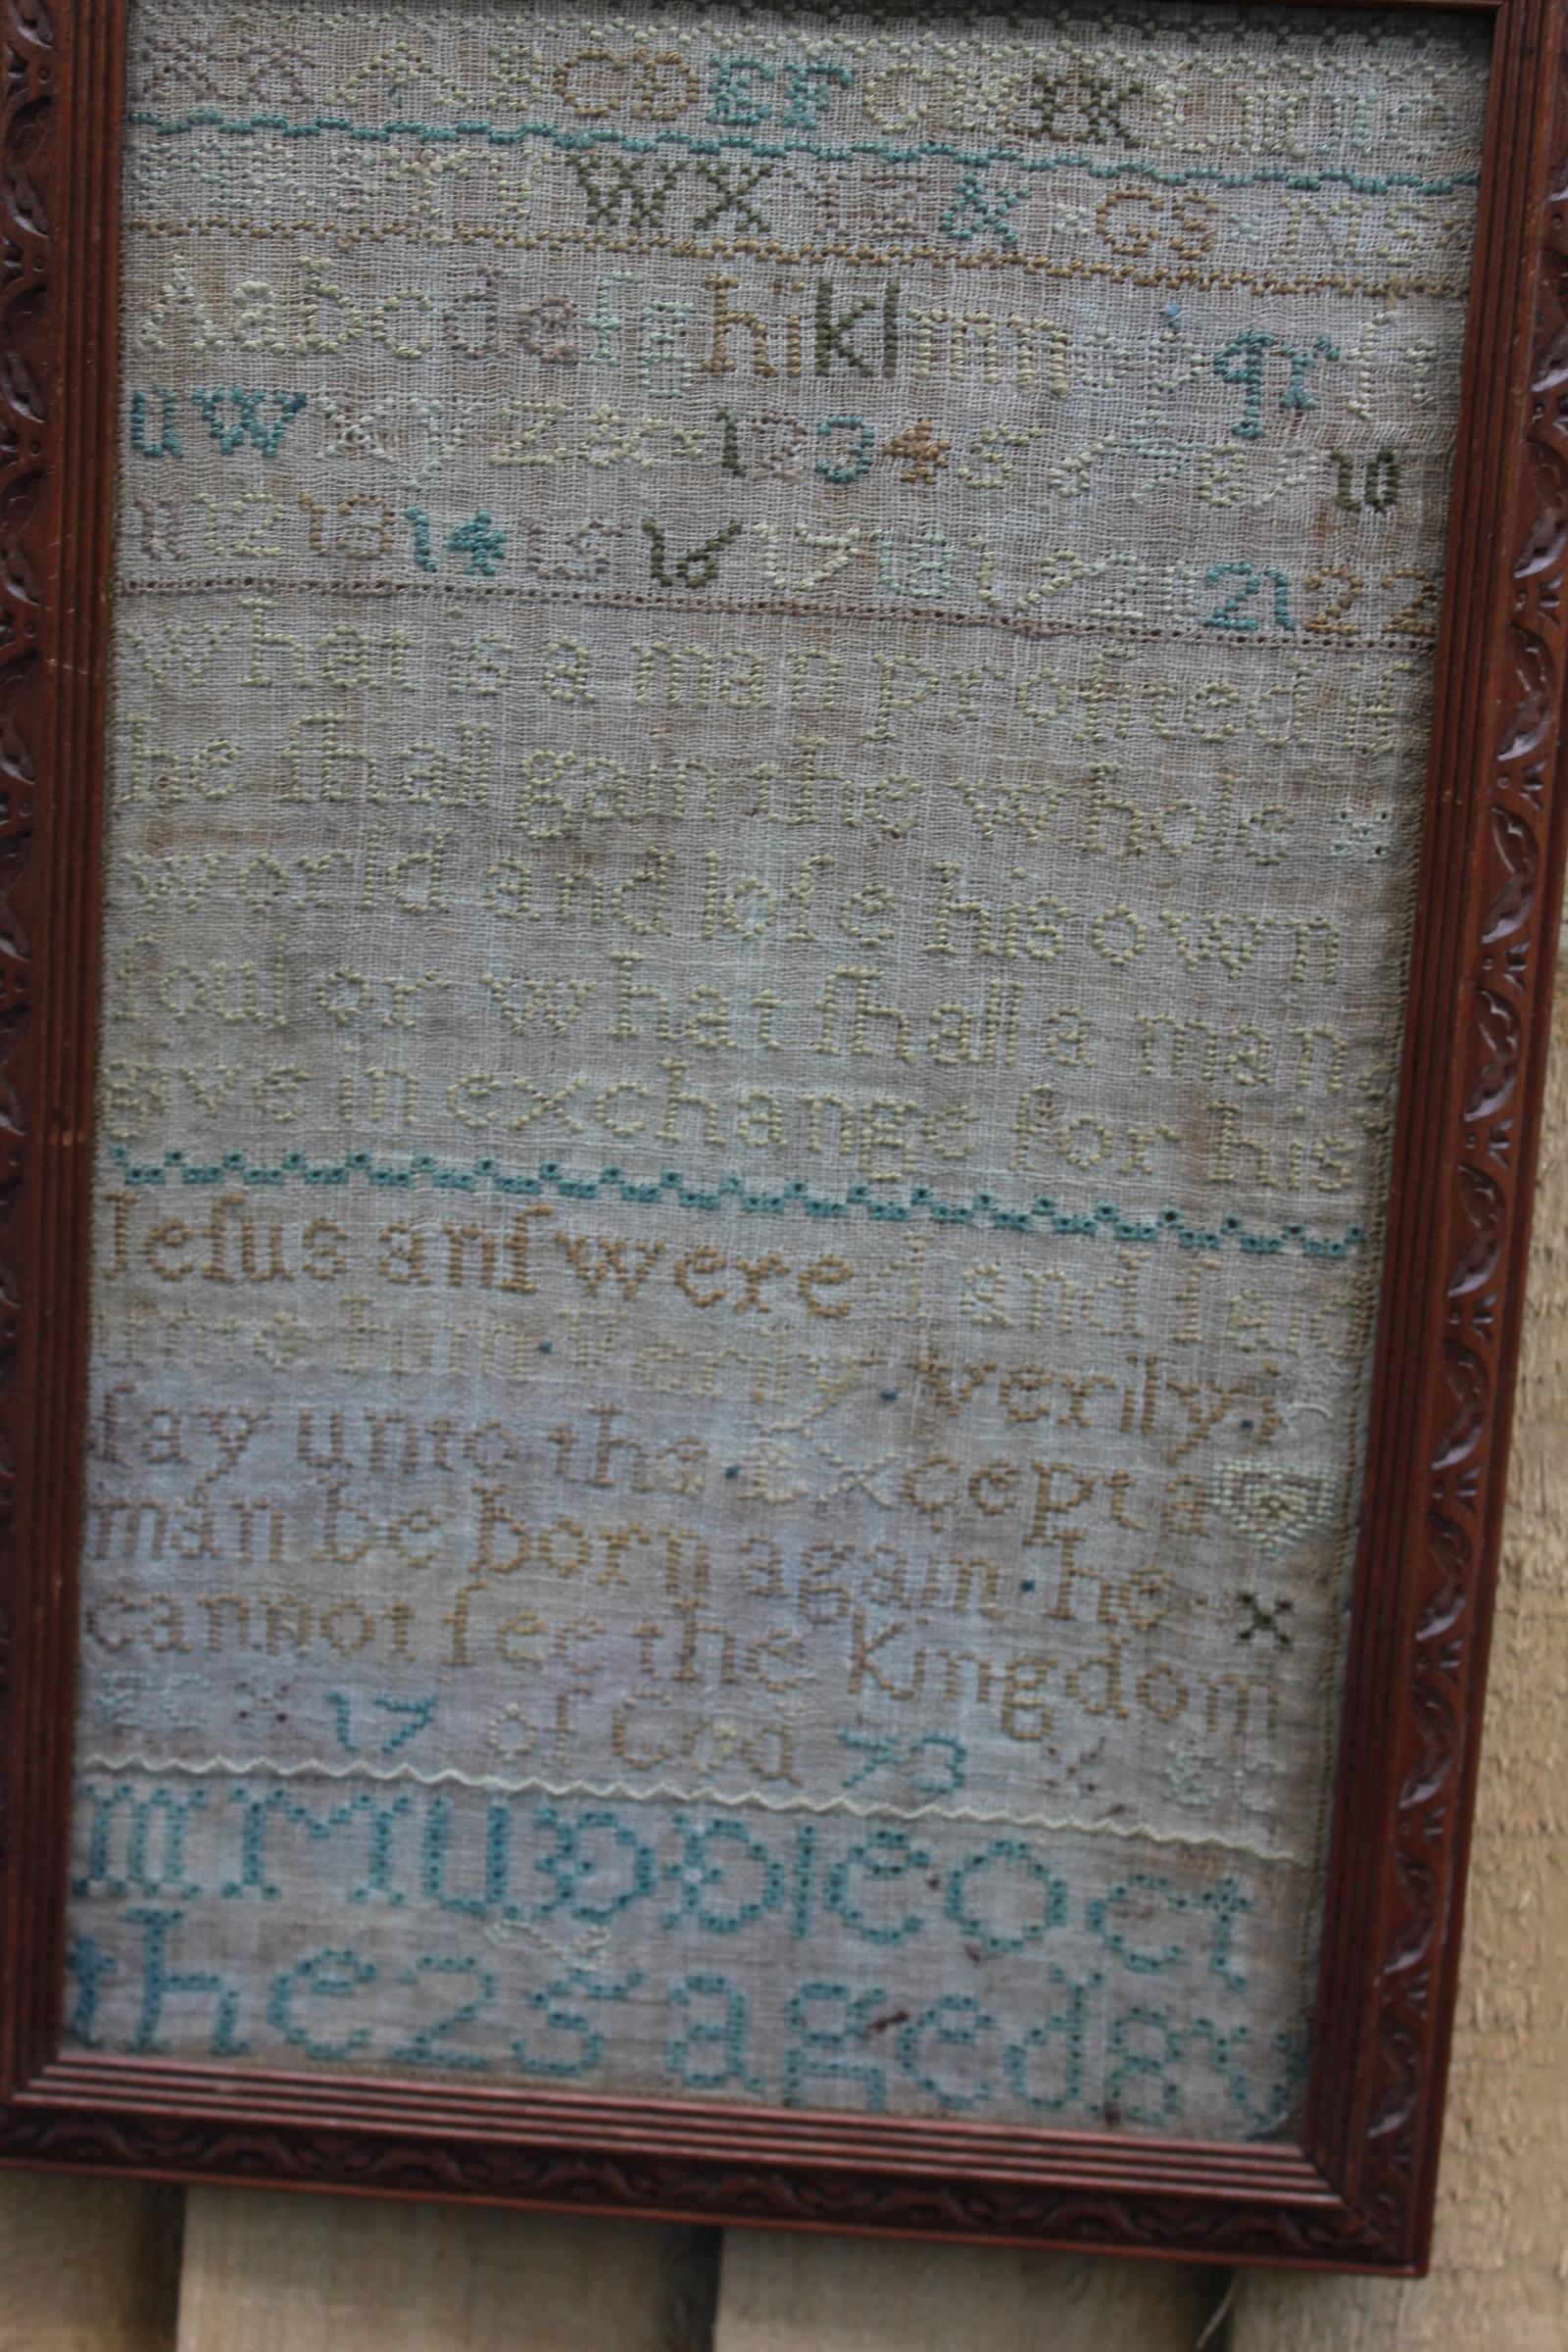 A B C D E F G H I K L m n o
W X Y Z & G S M S
A a b c d e f g h i k l m n o p q r ſ t
u w x y z & 1 2 3 4 5 6 7 8 9 10
11 12 13 14 15 16 17 18 19 20 21 22
what is a man profited if
he ſhall gain the whole
world and loſe his own
ſoul or what ſhall a man
give in exchange for his
Ieſus anſwered and ſaid
unto him Verily verily I
ſay unto the Except a
man be born again he
cannot ſee the Kingdom
EC 17 of God 73
Oct
the 25 aged 8 y